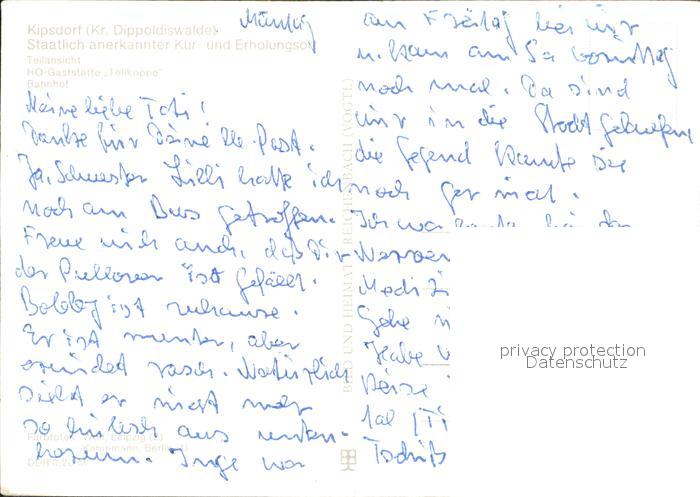 Kipsdorf (Kr. Dippoldiswalde)
Staatlich anerkannter Kur- und Erholungsort
Teilansicht
HO-Gaststätte „Tellkoppe"
Bahnhof
Montag
Meine liebe Toti!
Danke für Deine lb. Post.
Ja, Schwester Lilli hatte ich
noch am Bus getroffen.
Freue mich auch, daß Dir
der Pullover ist gefällt.
Bobby ist zuhause.
Er ist munter, aber
ermüdet rasch. Natürlich
sieht er nicht mehr
so einfach aus
Inge war
am Freitag bei mir
u. kam am Sa
noch mal. Da sind
wir in die Stadt gelaufen
die Gegend kannte sie
noch gar nicht.
Ich war
Nerven
Medizi
Gehe
Habe
Reise
Tschüß
BILD UND HEIMAT REICHENBACH (VOGTL)
privacy protection
Datenschutz